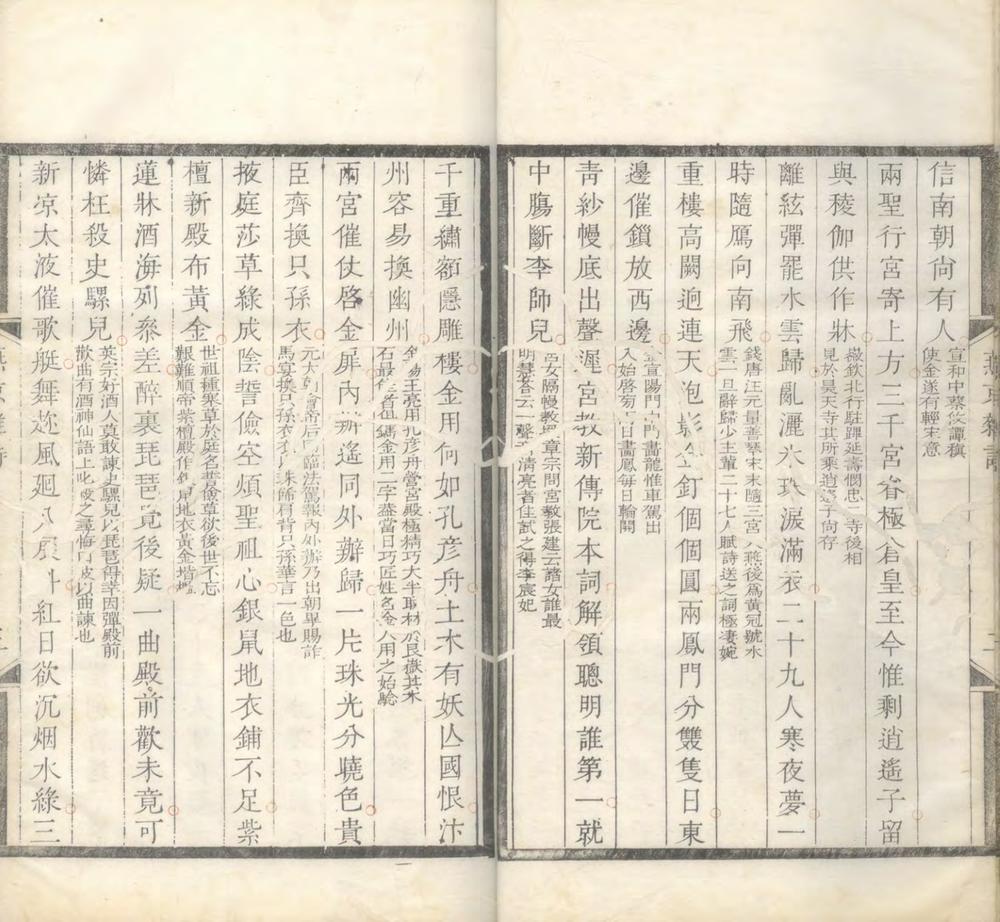 信南朝尚有人
宣和中蔡攸譚稹
使金遂有輕宋意
兩聖行宮寄上方三千宮眷極倉皇至今惟剩逍遙子留
與稜伽供作牀
徽欽北行駐蹕延壽憫忠二寺後相
見於昊天寺其所乘逍遙子尙存
離絃彈罷水雲歸亂灑水珠淚滿衣二十九人寒夜夢一
時隨鴈向南飛
錢唐汪元量善琴宋末隨三宮入燕後爲黃冠號水
雲一旦辭歸少主輩二十七人賦詩送之詞極淒婉
重樓高闕迥連天泡影金釘個個圓兩鳳門分雙隻日東
邊催鎖放西邊
金宣陽門中門畫龍惟車駕出
入始啓旁門畫鳳每日輪開
靑紗幔底出聲遲宮教新傳院本詞解領聰明誰第一就
中腸斷李師兒
宮女隔幔敎 章宗問宮敎張建云諸女誰最
明慧荅云一聲 淸亮者佳試之得李宸妃
千重繡額隱雕樓金用何如孔彦舟土木有妖亾國恨汴
州容易換幽州
金煬王亮用孔彦舟營宮殿極精巧大半取材於艮嶽其木
石最 者皆 鐫金用二字蓋當日巧匠姓名金人用之始驗
兩宮催仗啓金屏內辦遙同外辦歸一片珠光分曉色貴
臣齊換只孫衣
元大朝會帝后 臨法駕報內外辦乃出朝畢賜詐
馬宴換只孫衣衣 珠飾肩背只孫華言一色也
掖庭莎草綠成陰誓儉空煩聖祖心銀鼠地衣鋪不足紫
檀新殿布黃金
世祖種莎草於庭名誓儉草欲後世不忘
艱難順帝紫檀殿作銀鼠地衣黃金堦墄
蓮牀酒海列叅差醉裏琵琶覓後疑一曲殿前歡未竟可
憐枉殺史騾兒
英宗好酒人莫敢諫史騾兒以琵琶得幸因彈殿前
歡曲有酒神仙語上叱殺之尋悔曰彼以曲諫也
新凉太液催歌艇舞遊風廻八展斗紅日欲沉烟水綠三